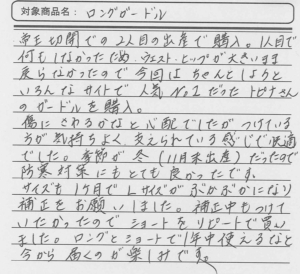 対象商品名：ロングガードル
帝王切開での2人目の出産で購入。1人目で
何もしなかったため、ウェスト・ヒップが大きいまま
戻らなかったので今回はちゃんとしようと
いろんなサイトで人気No.1だったトピナさん
のガードルを購入。
傷にさわるかなと心配でしたがつけている
方が気持ちよく、支えられている感じで快適
でした。季節が冬（11月末出産）だったので
防寒対策にもとても良かったです。
サイズも1ヶ月でLサイズがぶかぶかになり
補正をお願いしました。補正中もつけて
いたかったのでショートをリピートで買い
ました。ロングとショートで1年中使えるなと
今から届くのが楽しみです。